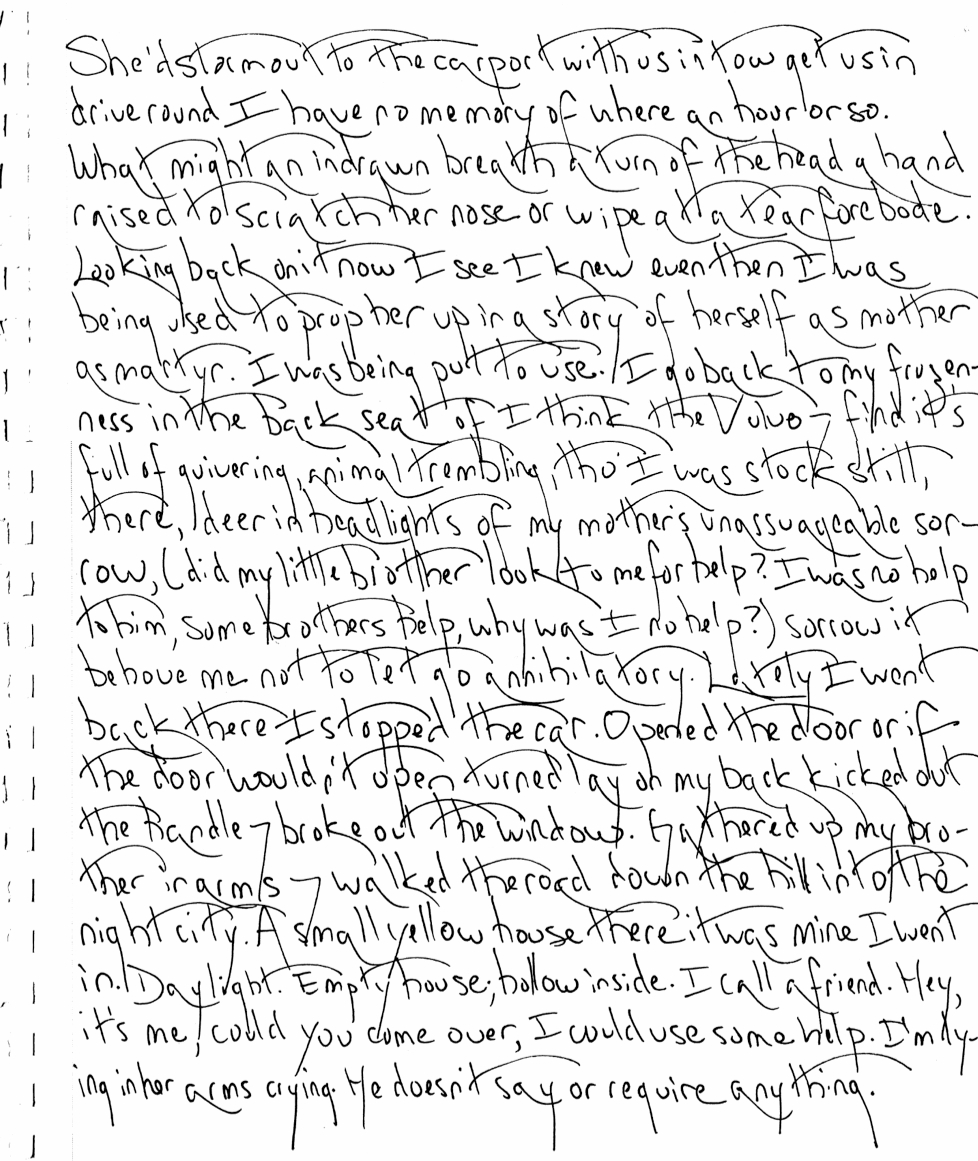 She'd storm out to the carport with us in tow get us in
drive round I have no memory of where an hour or so.
What might an indrawn breath a turn of the head a hand
raised to scratch her nose or wipe at a tear forebode.
Looking back on it now I see I knew even then I was
being used to prop her up in a story of herself as mother
as martyr. I was being put to use. / I go back to my frozen-
ness in the back seat of I think the Volvo ⁊ find it's
full of quivering, animal trembling, tho' I was stock still,
there, / deer in headlights of my mother's unassuageable sor-
row, (did my little brother look to me for help? I was no help
to him, some brothers help, why was I no help?) sorrow it
behove me not to let go annihilatory. Lately I went
back there I stopped the car. Opened the door or if
the door wouldn't open turned lay on my back kicked out
the handle ⁊ broke out the window. Gathered up my bro-
ther in arms ⁊ walked the road down the hill into the
night city. A small yellow house there it was mine I went
in. / Daylight. Empty house; hollow inside. I call a friend. Hey,
it's me, could you come over, I could use some help. I'm ly-
ing in her arms crying. He doesn't say or require anything.